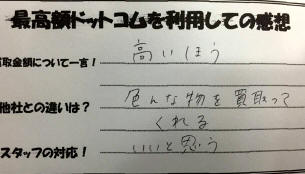 最高額ドットコムを利用しての感想
買取金額について一言！ 高いほう
他社との違いは？ 色んな物を買取って
くれる
スタッフの対応！ いいと思う